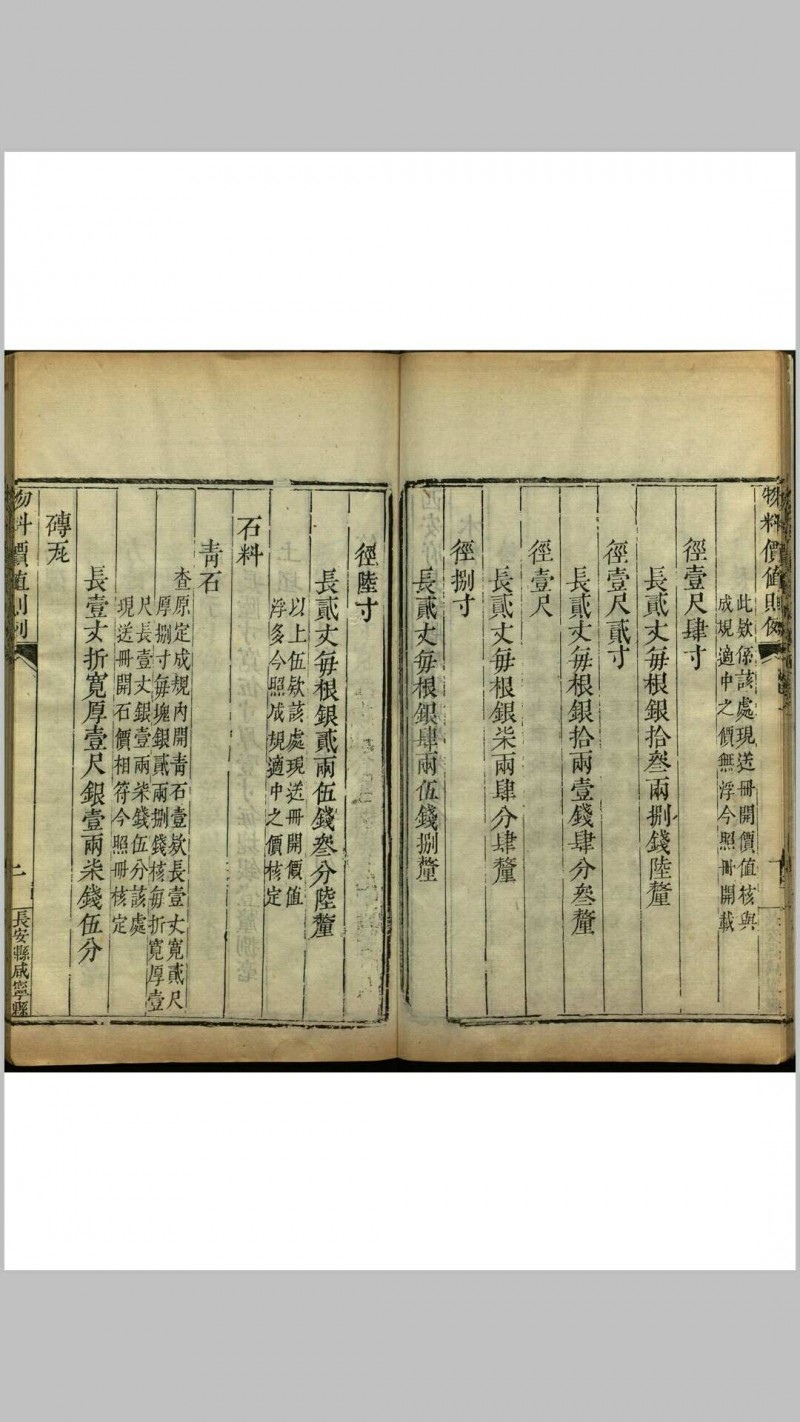 物料價值則例
此欵係該處現送冊開價值核與
成規適中之價無浮今照冊開載
徑壹尺肆寸
長貳丈每根銀拾叁兩捌錢陸釐
徑壹尺貳寸
長貳丈每根銀拾兩壹錢肆分叁釐
徑壹尺
長貳丈每根銀柒兩肆分肆釐
徑捌寸
長貳丈每根銀肆兩伍錢捌釐
徑陸寸
長貳丈每根銀貳兩伍錢叁分陸釐
以上伍欵該處現送冊開價值
浮多今照成規適中之價核定
石料
青石
查原定成規內開青石壹欵長壹丈寬貳尺
厚捌寸每塊銀貳兩捌錢核每折寬厚壹
尺長壹丈銀壹兩柒錢伍分該處
現送冊開石價相符今照冊核定
長壹丈折寬厚壹尺銀壹兩柒錢伍分
磚瓦
物料價值則例
二
長安縣咸寧縣